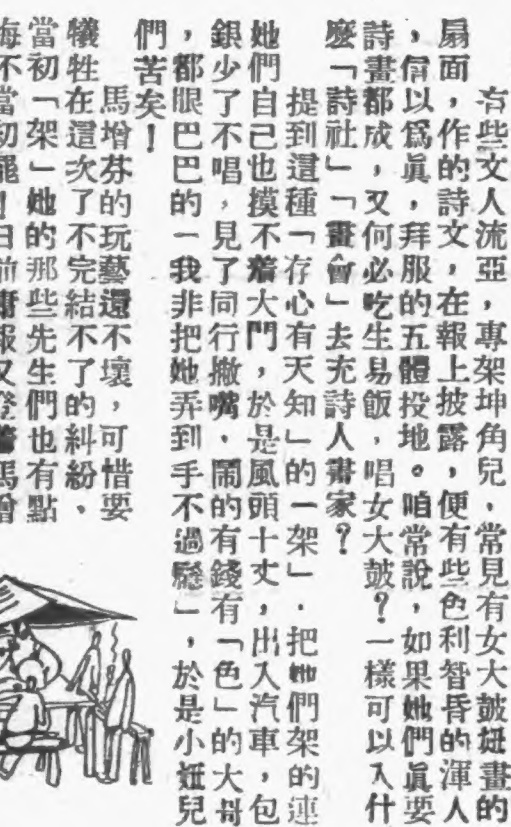 有些文人流亞，專架坤角兒，常見有女大鼓妞畫的
扇面，作的詩文，在報上披露，便有些色利智昏的渾人
，信以爲眞，拜服的五體投地。咱常說，如果她們眞要
詩畫都成，又何必吃生易飯，唱女大鼓？一樣可以入什
麼「詩社」「畫會」去充詩人畫家？
提到這種「存心有天知」的「架」，把她們架的連
她們自己也摸不着大門，於是風頭十丈，出入汽車，包
銀少了不唱，見了同行撇嘴，鬧的有錢有「色」的大哥
，都眼巴巴的「我非把她弄到手不過癮」，於是小妞兒
們苦矣！
馬增芬的玩藝還不壞，可惜要
犧牲在這次了不完結不了的糾紛、
當初「架」她的那些先生們也有點
悔不當初罷！日前庸報又登着馬增